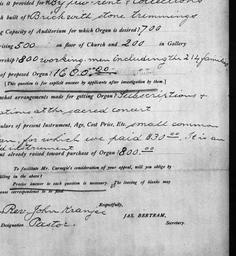 is it provided for? By pew-rent & Collections
built of? Brick with stone trimmings
g Capacity of Auditorium for which Organ is desired? 700
rising 500 on floor of Church and 200 in Gallery
ership? 800 working men including the 214 families
of proposed Organ? 1600.00
(This question is for explicit answer by applicants after investigation by them.)
what arrangements made for getting Organ? Subscriptions &
ations at the sacred concert
culars of present Instrument, Age, Cost Price, Etc. small common
an, for which we paid 830.00 It is an
instrument
nt already raised toward purchase of Organ? 800.00
To facilitate Mr. Carnegie's consideration of your appeal, will you oblige by
filling in the above?
Precise answer to each question is necessary. The leaving of blanks may
correspondence to be
Respectfully,
Rev. John Kranjec JAS. BERTRAM,
Designation Pastor. Secretary.